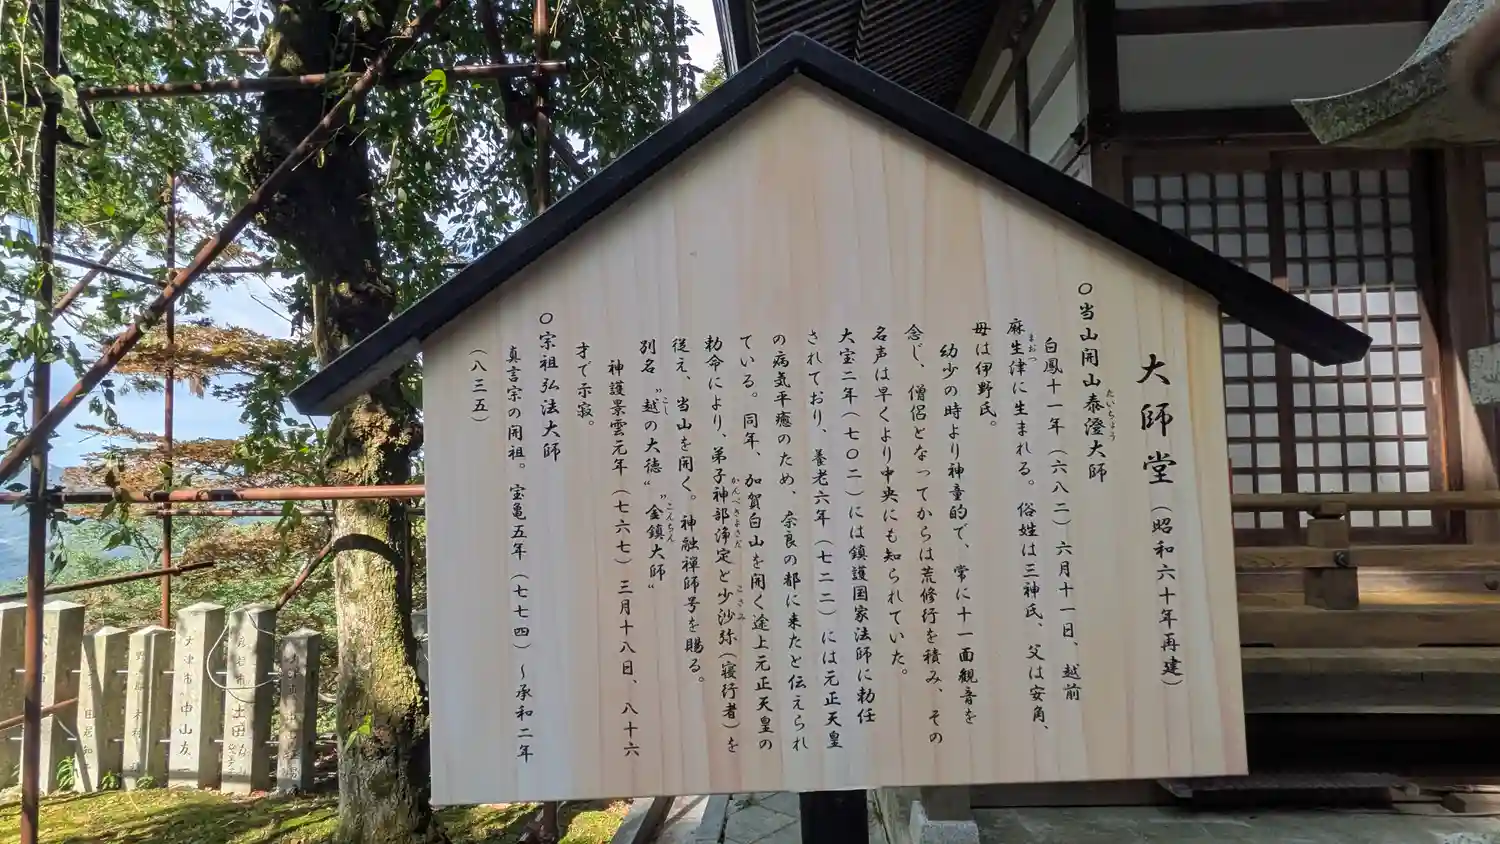 大師堂(昭和六十年再建)
○当山開山泰澄大師
たいちょう
白鳳十一年(六八二)六月十一日、越前
麻生津に生まれる。俗姓は三神氏、父は安角、
まおつ
母は伊野氏。
幼少の時より神童的で、常に十一面観音を
念じ、僧侶となってからは荒修行を積み、その
名声は早くより中央にも知られていた。
大宝二年(七〇二)には鎮護国家法師に勅任
されており、養老六年(七二二)には元正天皇
の病気平癒のため、奈良の都に来たと伝えられ
ている。同年、加賀白山を開く途上元正天皇の
勅命により、弟子神部浄定と少沙弥(寝行者)を
かんべきよさだ
こさみ
従え、当山を開く。神融禅師号を賜る。
別名〝越の大徳〟〝金鎮大師〟
こし
こんちん
神護景雲元年(七六七)三月十八日、八十六
才で示寂。
○宗祖弘法大師
真言宗の開祖。宝亀五年(七七四)～承和二年
(八三五)
大津市 中山友